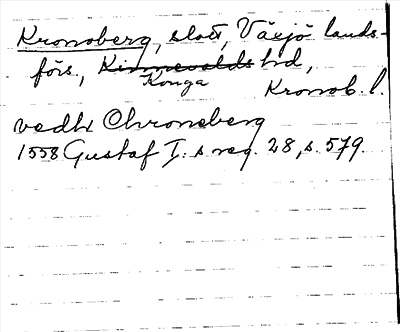 Kronoberg, slott, Växjö lands-
förs., Kinnevalds hd,
Konga
Kronob. l.
vedh Chroneberg
1558 Gustaf I:s reg. 28, s. 579.